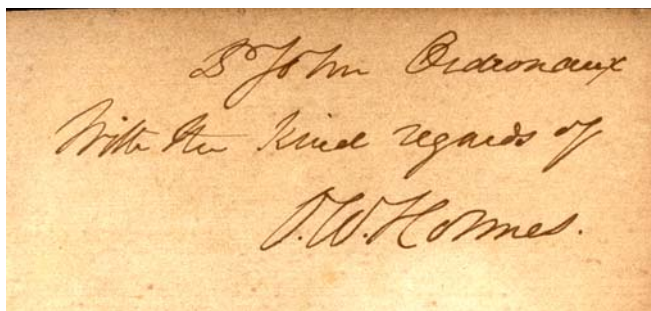 Dr John Ordronaux
With the kind regards of
O. W. Holmes.